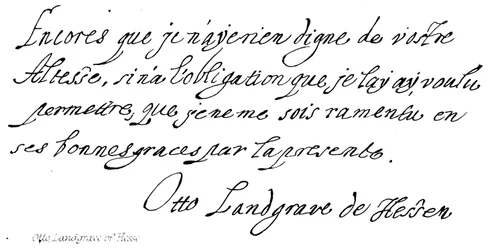 Encores que je n'aye rien digne de vostre
Altesse, sin'a l'obligation que je lay ay, voulu
permettre, que je ne me sois ramentu en
ses bonnes graces par la presente.
Otto Landgrave de Hessen
Otto Landgrave of Hesse